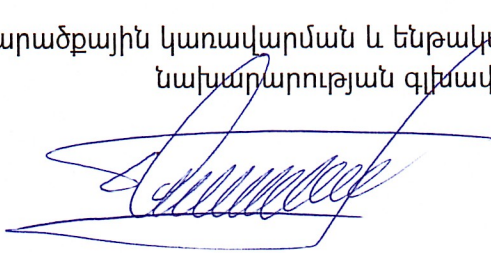 արածքային կառավարման և ենթակ
նախարարության գլխավ